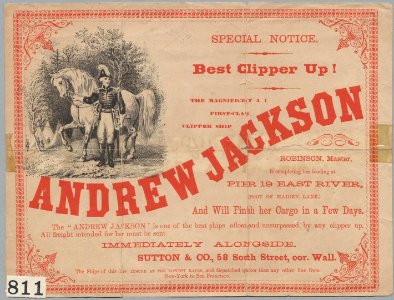 SPECIAL NOTICE.
Best Clipper Up!
THE MAGNIFICENT A 1
FIRST-CLASS
CLIPPER SHIP
ANDREW JACKSON
ROBINSON, Master,
Is completing her loading at
PIER 19 EAST RIVER,
(FOOT OF MAIDEN LANE)
And Will Finish her Cargo in a Few Days.
The "ANDREW JACKSON" is one of the best ships afloat and unsurpassed by any clipper up.
All freight intended for her must be sent
IMMEDIATELY ALONGSIDE.
SUTTON & CO., 58 South Street, cor. Wall.
The Ships of this line INSURE AT THE LOWEST RATES, and dispatched quicker than any other line from
New-York to San Francisco.
811